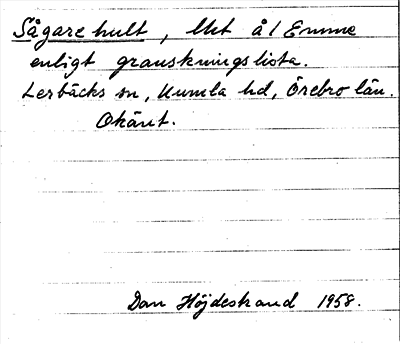 Sågarehult, Ukt å 1 Emme
enligt granskningslista.
Lerbäcks sn, Kumla hd, Örebro län.
Okänt.
Dan Höjdestrand 1958.